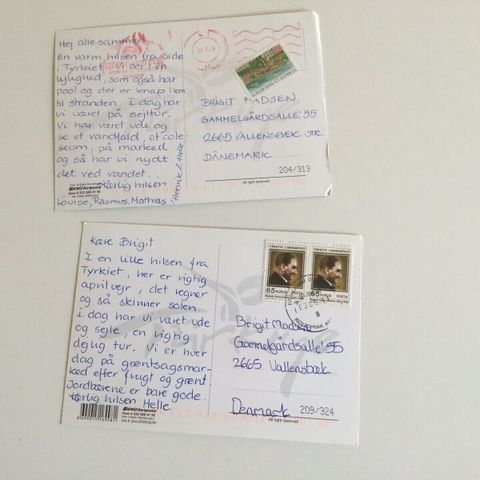 Hej alle sammen
En varm hilsen fra Side,
Tyrkiet. Vi bor i en
lejlighed, som også har
pool og der er knap 1 km
til stranden. I dag har
vi været på sejltur.
Vi har været ude og
se et vandfald, et colo-
seum, på marked
og så har vi nydt
det ved vandet.
Kærlig hilsen
Louise, Rasmus, Mathias
Henrik & Helle
BIRGIT MADSEN
GAMMELGÅRDSALLE' 55
2665 VALLENSBÆK STR.
DANEMARK
204/313
All right reserved
Kære Birgit
I en lille hilsen fra
Tyrkiet, her er rigtig
aprilvejr, det regner
og så skinner solen.
I dag har vi været ude
og sejle, en rigtig
dejlig tur. Vi er hver
dag på grøntsagsmar-
ked efter frugt og grønt.
Jordbærene er bare gode.
Kærlig hilsen Helle
TÜRKİYE CUMHURİYETİ
65 KURUŞ POSTA
TÜRKİYE CUMHURİYETİ
65 KURUŞ POSTA
Birgit Madsen
Gammelgårdsalle' 55
2665 Vallensbæk
Denmark
209/324
All right reserved